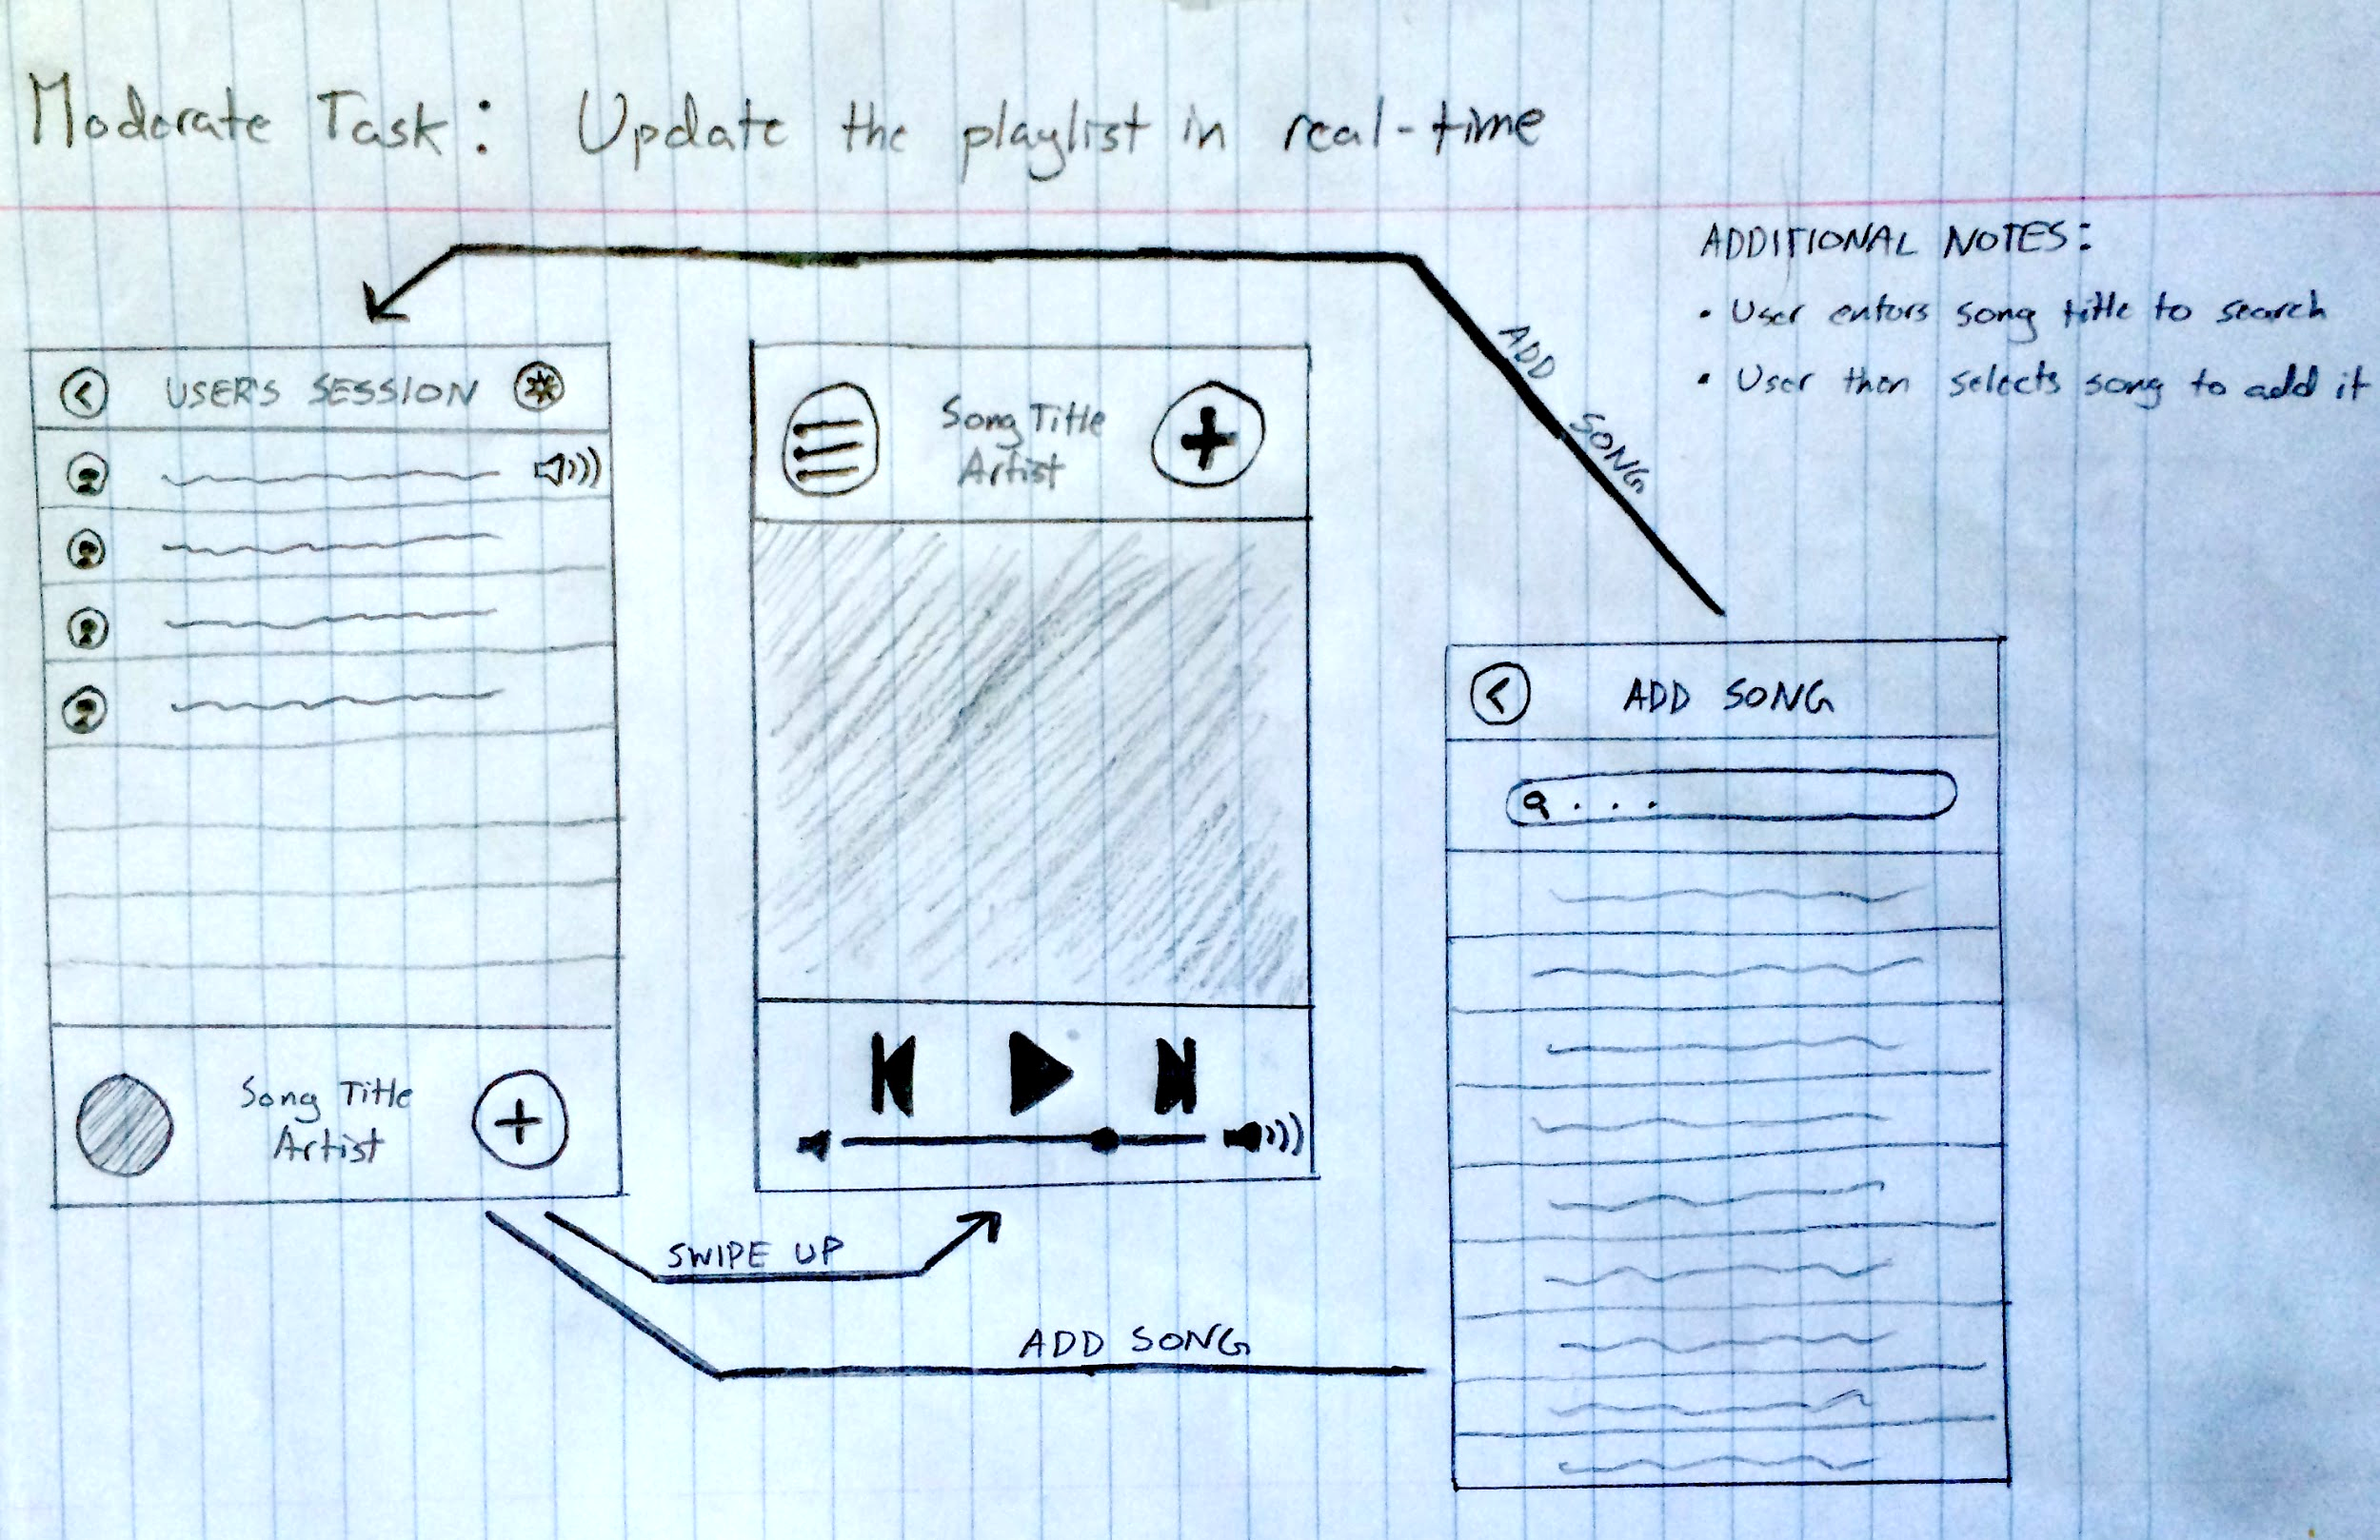 Moderate Task: Update the playlist in real-time
ADDITIONAL NOTES:
• User enters song title to search
• User then selects song to add it
ADD SONG
USER'S SESSION
Song Title
Artist
ADD SONG
Song Title
Artist
SWIPE UP
ADD SONG